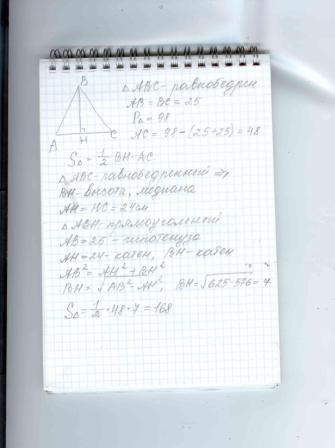 B
A H C
△ ABC - равнобедрен
AB = BC = 25
P△ = 98
AC = 98 - (25+25) = 48
S△ = 1/2 BH·AC
△ABC-равнобедренный ⇒
BH-высота, медиана
AH = HC = 24см
△ ABH-прямоугольный
AB = 25 - гипотенуза
AH = 24 - катет, BH - катет
AB² = AH² + BH²
BH = √AB² - AH², BH = √625-576 = 7
S△ = 1/2 · 48 · 7 = 168